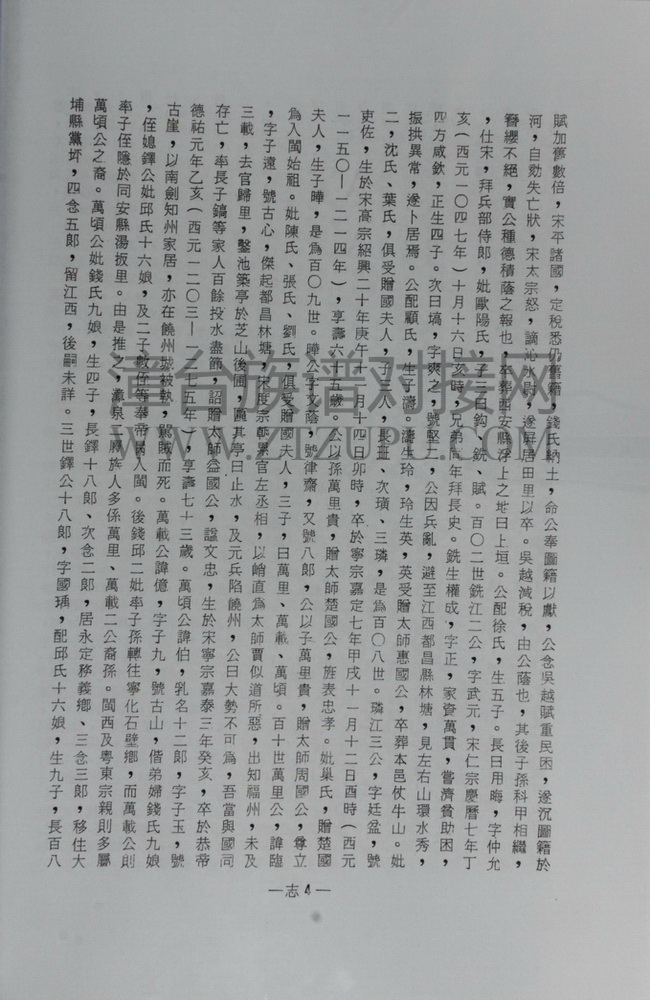 賦加舊數倍，宋平諸國，定稅悉仍舊籍，錢氏納土，命公奉圖籍以獻，公念吳越賦重民困，遂沉圖籍於
河，自劾失亡狀，宋太宗怒，謫沁水尉，遂屏居田里以卒。吳越減稅，由公蔭也，其後子孫科甲相繼，
簪纓不絕，實公種德積蔭之報也，卒葬西安縣浮上之地曰上垣。公配徐氏，生五子。長日用晦，字仲允
，仕宋，拜兵部侍郎，妣歐陽氏，子三曰鈎、銑、賦。百〇二世銑江二公，字武元，宋仁宗慶曆七年丁
亥（西元一〇四七年）十月十六日亥時，兄弟同年拜長史。銑生權成，字正，家資萬貫，嘗濟貧助困，
四方咸欽，正生四子。次曰塙，字爽之，號堅二，公因兵亂，避至江西都昌縣林塘，見左右山環水秀，
振拱異常，遂卜居焉。公配顧氏，生子濤。濤生玲，玲生英，英受贈太師惠國公，卒葬本邑仗牛山。妣
二，沈氏、葉氏，俱受贈國夫人，子三人，長班、次璜、三璘，是為百〇八世。璘江三公，字廷盆，號
吏佐，生於宋高宗紹興二十年庚午十一月十四日卯時，卒於寧宗嘉定七年甲戌十一月十二日酉時（西元
一一五〇—一二一四年），享壽六十五歲。公以孫萬里貴，贈太師楚國公，旌表忠孝。妣巢氏，贈楚國
夫人，生子曄，是為百〇九世。曄公字文蔭，號律齋，又號八郎，公以子萬里貴，贈太師周國公，尊立
為入閩始祖。妣陳氏、張氏、劉氏，俱受贈國夫人，三子，曰萬里、萬載、萬頃。百十世萬里公，諱臨
，字子遠，號古心，傑起都昌林塘，宋度宗朝累官左丞相，以峭直為太師賈似道所惡，出知福州，未及
三載，去官歸里，鑿池築亭於芝山後圃，匾其亭曰止水，及元兵陷饒州，公曰大勢不可為，吾當與國同
存亡，率長子鎬等家人百餘投水盡節，詔贈太師益國公，諡文忠，生於宋寧宗嘉泰三年癸亥，卒於恭帝
德祐元年乙亥（西元一二〇三—一二七五年），享壽七十三歲。萬頃公諱伯，乳名十二郎，字子玉，號
古崖，以南劍知州家居，亦在饒州城被執，罵賊而死。萬載公諱億，字子九，號古山，偕弟婦錢氏九娘
，侄媳鐸公妣邱氏十六娘，及二子數侄等奉帝昺入閩。後錢邱二妣率子孫轉往寧化石壁鄉，而萬載公則
率子侄隱於同安縣湯扳里。由是推之，漳泉二屬族人多係萬里、萬載二公裔孫。閩西及粵東宗親則多屬
萬頃公之裔。萬頃公妣錢氏九娘，生四子，長鐸十八郎、次念二郎，居永定務義鄉、三念三郎，移住大
埔縣黨坪，四念五郎，留江西，後嗣未詳。三世鐸公十八郎，字國瑀，配邱氏十六娘，生九子，長百八
—志4—
漳台族谱对接网
WWW.ZTZUPU.COM